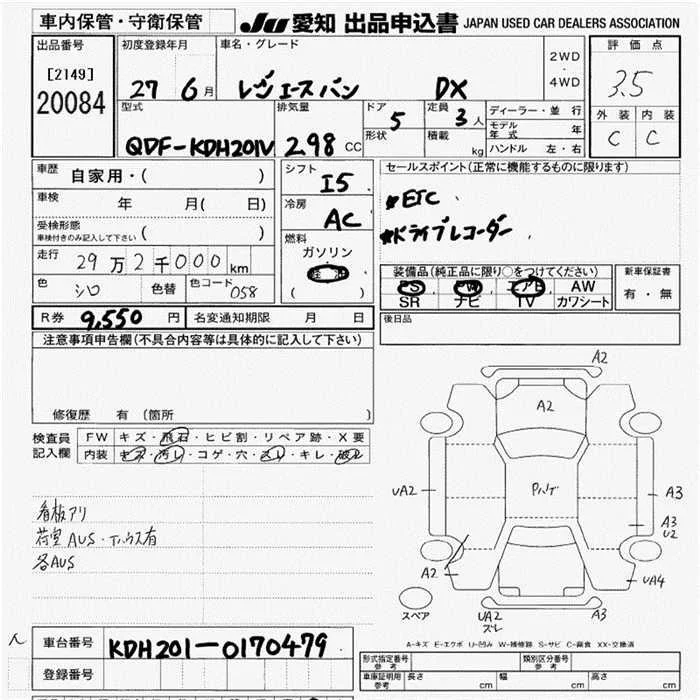 車内保管・守衛保管
JU 愛知 出品申込書 JAPAN USED CAR DEALERS ASSOCIATION
出品番号
[2149]
20084
初度登録年月
27 6 月
車名・グレード
レジエースバン DX
2WD
・
4WD
評価点
3.5
外装 内装
C C
型式
QDF-KDH201V
排気量
2.98 CC
ドア
5
形状
定員
3 人
積載
kg
ディーラー・並行
モデル年式 年
ハンドル 左・右
車歴
自家用・( )
車検
年 月( 日)
受検形態
車検付きのみ記入して下さい ( )
走行
29万2千000km
色
シロ
色替
色コード
058
シフト
I5
冷房
AC
燃料
ガソリン
・
軽油
( )
セールスポイント(正常に機能するものに限ります)
*ETC
*ドライブレコーダー
装備品(純正品に限り○をつけてください)
PS PW エアB AW
SR ナビ TV カワシート
新車保証書
有・無
R券 9,550 円
名変通知期限 月 日
後日品
注意事項申告欄(不具合内容等は具体的に記入して下さい)
修復歴 有 (箇所 )
検査員
記入欄
FW キズ・飛石・ヒビ割・リペア跡・X要
内装 キズ・汚レ・コゲ・穴・スレ・キレ・破レ
看板アリ
荷室AUS・
有
各AUS
A2
A2
UA2
A3
A3
U2
A2
UA4
スペア
UA2
ズレ
A3
A-キズ E-エクボ U-凹み W-補修跡 S-サビ C-腐食 XX-交換済
車台番号
KDH201-0170479
登録番号
形式指定番号
参考
類別区分番号
参考
車庫証明用
参考
長さ cm
幅 cm
高さ cm